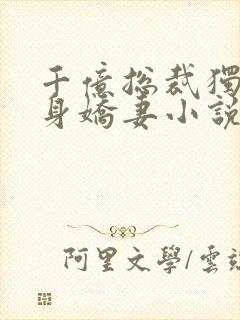 千億總裁獨
身嬌妻小說
阿里文學/雲